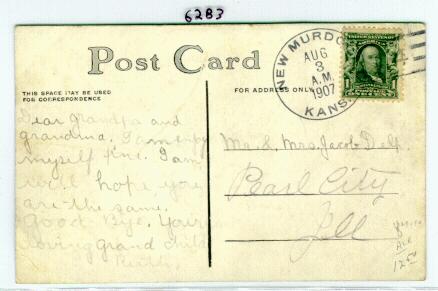 6283
Post Card
THIS SPACE MAY BE USED
FOR CORRESPONDENCE
FOR ADDRESS ONLY
NEW MURDO
AUG
3
A.M.
1907
KANS.
Dear grandpa and
grandma. I am
myself fine. I am
well hope you
are the same.
Good-Bye. Your
loving grand child
Mr. & Mrs. Jacob
Pearl City
Ill
1250